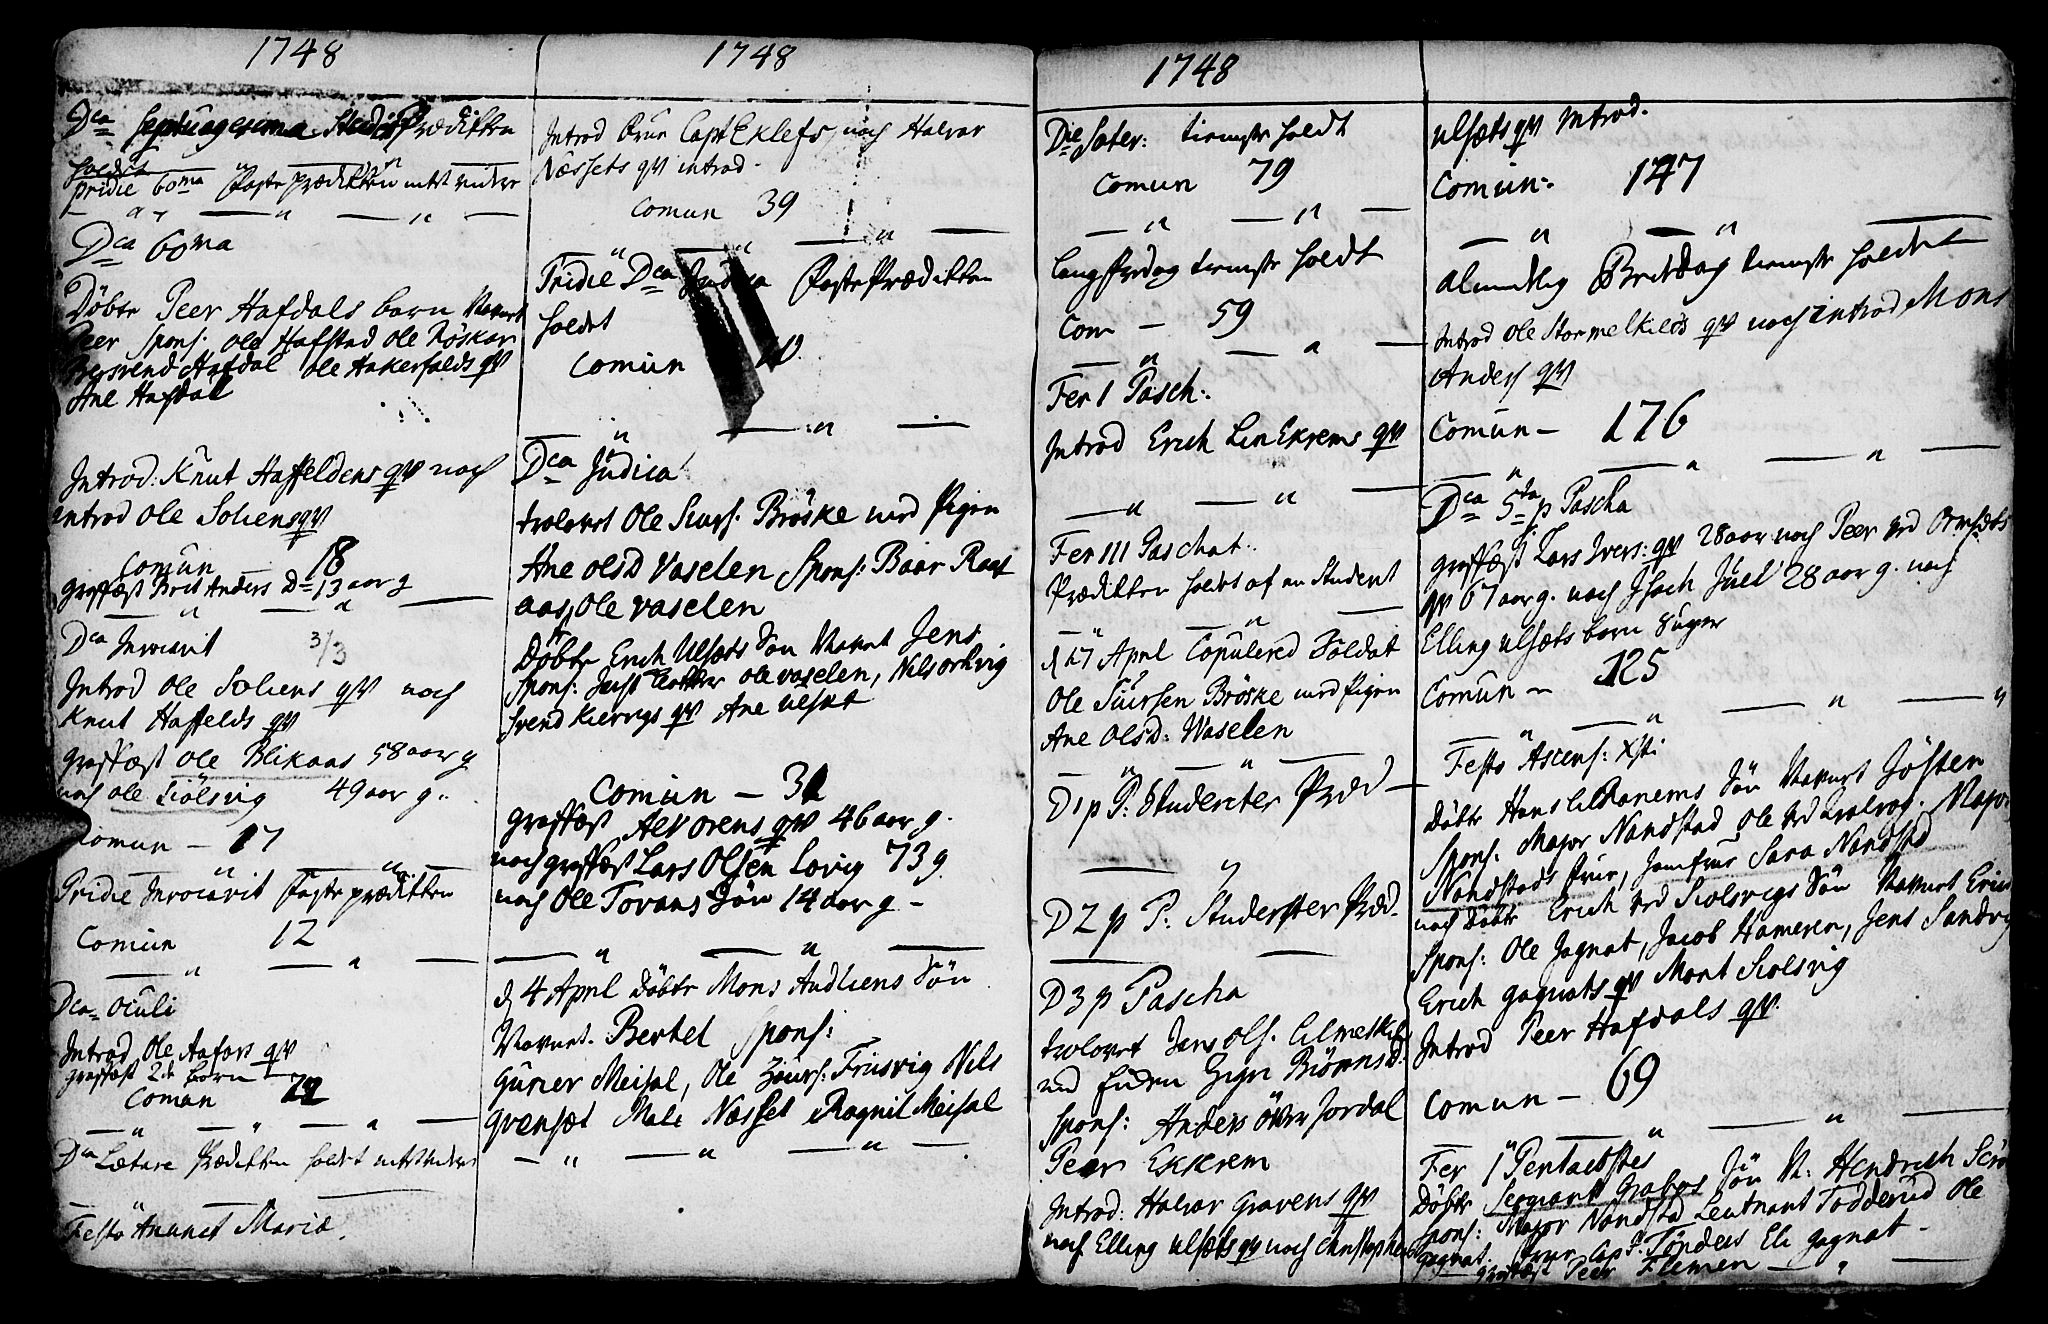 1748
Dca Septuagesima Studenter Prædikken
holdet
Pridie 60ma Faste prædikken intet videre
Dca 60ma
Döbte Peer Hafdals barn Navnet
Peer Spons: Ole Hafstad Ole Röskar
Svend Hafdal Ole Hakerfalds qv
Ane Hafdal
Introd: Knut Haffeldens qv noch
introd Ole Soliens qv
Comun 18
graffæst Brit Anders D 13 aar g
Dca Invocavit 3/3
Introd Ole Soliens qv noch
Knut Haffelds qv
graffæst Ole Blikaas 58 aar g
noch Ole Siölsvig 49 aar g.
Comun - 17
Pridie Invocavit Faste prædikken
Comun 12
Dca Oculi
Introd Ole Aafars qv
graffæst 2de börn
Coman 72
Dca Lætare Prædikken holdet intet videre
Festo Anunct Mariæ
1748
Introd Frue Capt Eklefs, noch Halvor
Næssets qv introd.
Comun 39
Pridie Dca Judica Faste Prædikken
holdet
Comun
Dca Judica
trolovet Ole Siurs: Bröske med Pigen
Ane Olsd Vaselen Spons: Baar Raet
aas, Ole Vaselen
Döbte Erich Ulsæts Sön Navnet Jens
Spons: Ole Vaselen, Nils
Svend Kiervigs qv Ane Ulsæt
Comun - 31
graffæst Alv Orens qv 46 aar g.
noch graffæst Lars Olsen Lovig 73 g.
noch Ole Torvans Sön 14 aar g -
d 4 April Döbte Mons Audliens Sön
Navnet. Bertel Spons:
Gurier Meisal, Ole Siurs: Frisvig Nils
Grensæt Mali Næsset Ragnil Meisal
1748
Die Sater: tieneste holdt
Comun 79
Langfredag tieneste holdt
Com - 59
Fer 1 Pasch:
Introd Erich LinEkrems qv
Fer III Paschat.
Prædikken holdet af en Student
d 17 April Copulered Soldat
Ole Siursen Bröske med Pigen
Ane Olsd: Waselen
D 1 p P: Studenter Præd -
D 2 p P: Studenter Præd.
D 3 p Pascha
trolovet Jens Ols:
med Enken Gigri Biörnsd:
Spons: Anders över Jordal
Peer Ekkrem
Introd: Halvor Gravens qv
noch Elling Ulsæts qv noch Christopher
Ulsæts qv Introd.
Comun. 147
Almindelig Bededag tieneste holdet
Introd Ole Stormelkeds qv noch introd Mons
Anders qv
Comun - 176
Dca 5ta p Pascha
graffæst Lars Ivers: qv 28 aar noch Peer ved Ormsæts
qv 67 aar g. noch Isach Juel 28 aar g. noch
Elling Ulsæts barn 8 uger
Comun - 125
Festo Ascens: Xsti
Döbte Hans Lilleranems Sön Navnet Jösten
Spons: Major Nandstad Ole ved Major
Nandstads Frue, Jomfrue Sara Nandstad
noch Döbte Erich ved Siolsvigs Sön Navnet Erich
Spons: Ole Gagnat, Jacob Hameren, Jens Sandvig
Erich Gagnats qv Marit Siolsvig
Introd Peer Hafdals qv.
Comun - 69
Fer 1 Pentacostes
Döbte Sergiant Grabos Sön N: Hendrich
Spons: Major Nandstad Leutnant Todderud Ole
Gagnat. Frue Capt: Tönders Eli Gagnat -
graffæst Peer Flemen